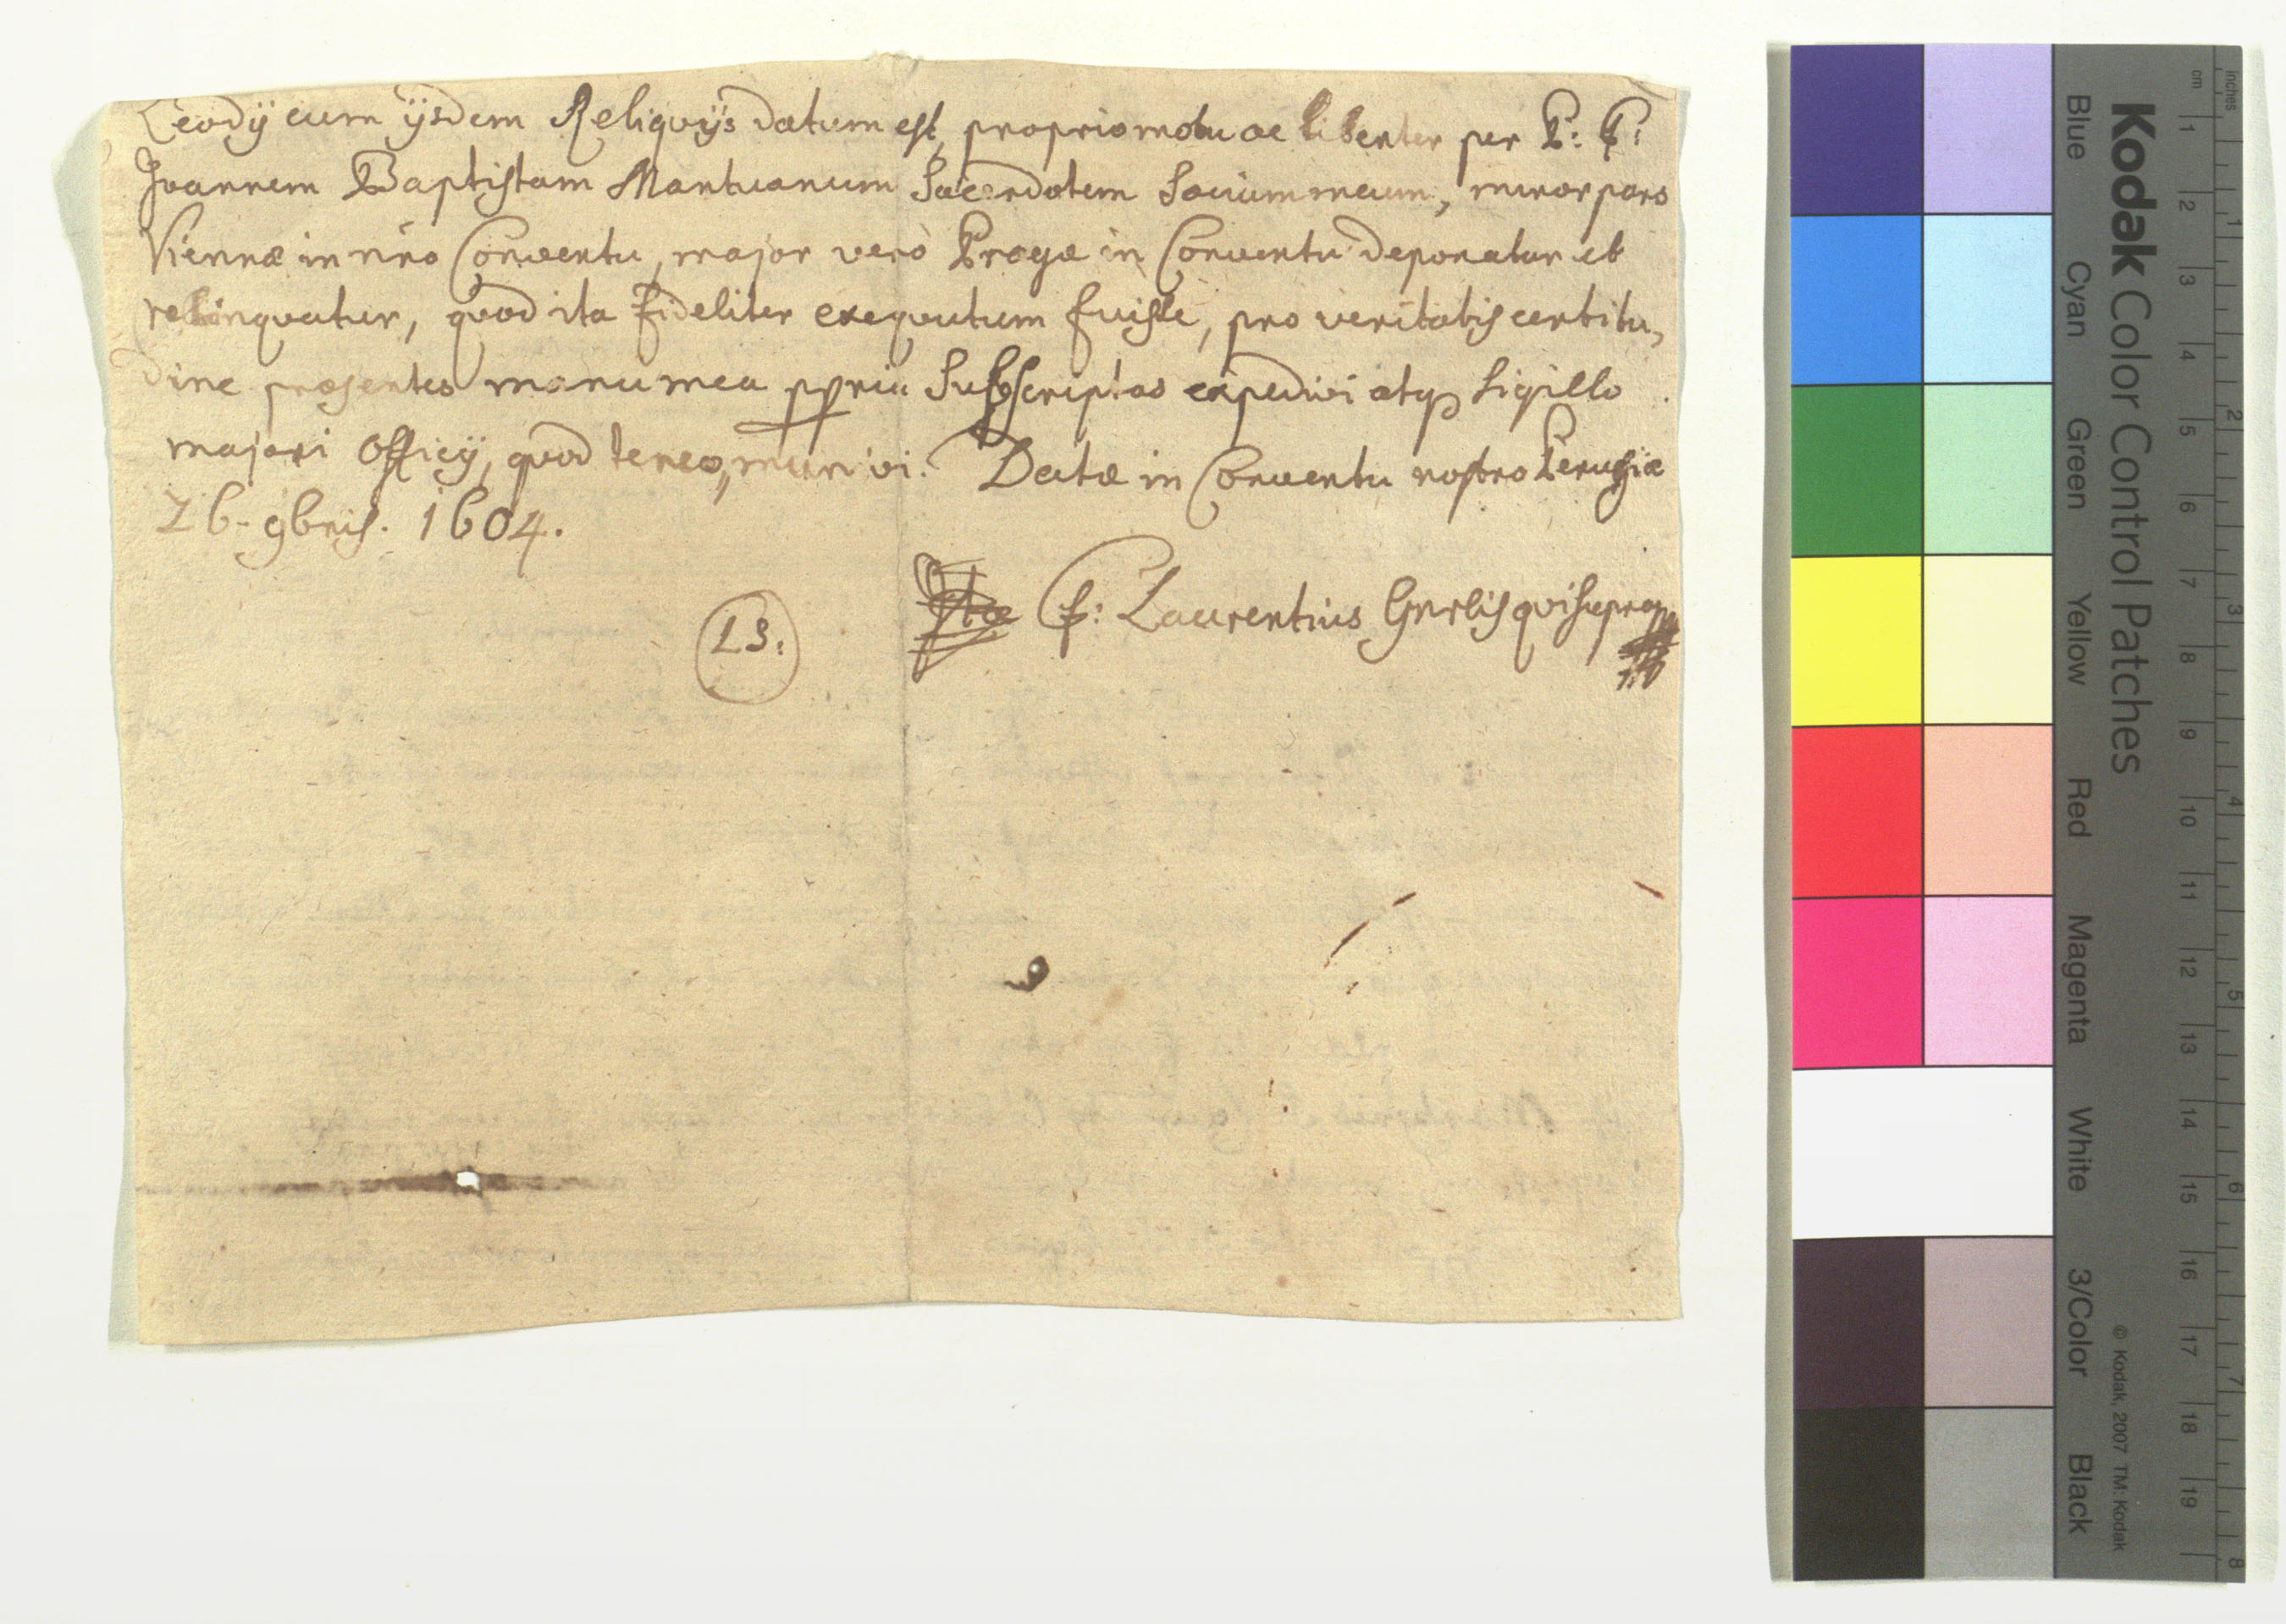 Leodij cum ijsdem Reliquijs datum est, proprio motu ac libenter per P: F:
Joannem Baptistam Mantuanum Sacerdotem Socium meum, minor pars
Viennæ in nr̃o Conventu, major verò Pragæ in Conventu deponatur et
relinquatur, quod ita fideliter exequutum fuisse, pro veritatis certitu,
dine præsentes manu mea ppria Subscriptas expedivi atq Sigillo
majori Officij, quod teneo, munivi. Datæ in Conventu nostro Perugiæ
26. 9bris. 1604.
LS:
F: Laurentius Gnrlis qui supra
Kodak Color Control Patches
Blue Cyan Green Yellow Red Magenta White 3/Color Black
© Kodak, 2007 TM: Kodak
cm 1 2 3 4 5 6 7 8 9 10 11 12 13 14 15 16 17 18 19
inches 1 2 3 4 5 6 7 8